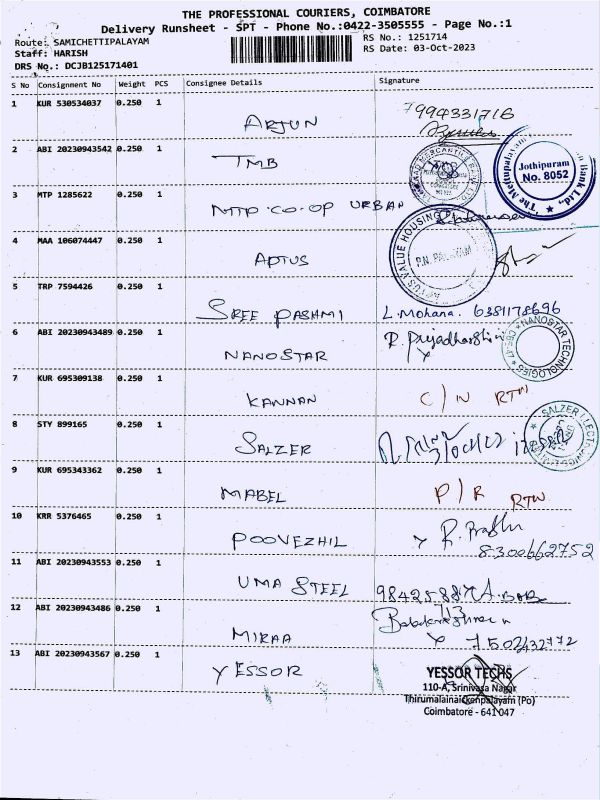 THE PROFESSIONAL COURIERS, COIMBATORE
Delivery Runsheet - SPT - Phone No.:0422-3505555 - Page No.:1
Route: SAMICHETTIPALAYAM
Staff: HARISH
DRS No.: DCJB125171401
RS No.: 1251714
RS Date: 03-Oct-2023
S No Consignment No Weight PCS Consignee Details Signature
1 KUR 530534037 0.250 1
ARJUN 7994331716
2 ABI 20230943542 0.250 1
TMB
Jothipuram
No. 8052
3 MTP 1285622 0.250 1
MTP CO-OP URBAN
4 MAA 106074447 0.250 1
APTUS
APTUS VALUE HOUSING
5 TRP 7594426 0.250 1
SREE PASHMI L. Mohana. 6381178696
6 ABI 20230943489 0.250 1
NANOSTAR R. Priyadharshini
NANOSTAR TECHNOLOGIES
7 KUR 695309138 0.250 1
KANNAN C/N RTN
8 STY 899165 0.250 1
SALZER
SALZER
9 KUR 695343362 0.250 1
MABEL P/R RTN
10 KRR 5376465 0.250 1
POOVEZHIL R. Prabhu
8300662752
11 ABI 20230943553 0.250 1
UMA STEEL 9842588
713
12 ABI 20230943486 0.250 1
MIRAA
7502432772
13 ABI 20230943567 0.250 1
YESSOR
YESSOR TECHS
110-A, Srinivasa Nagar
Thirumalainaickenpalayam (Po)
Coimbatore - 641 047